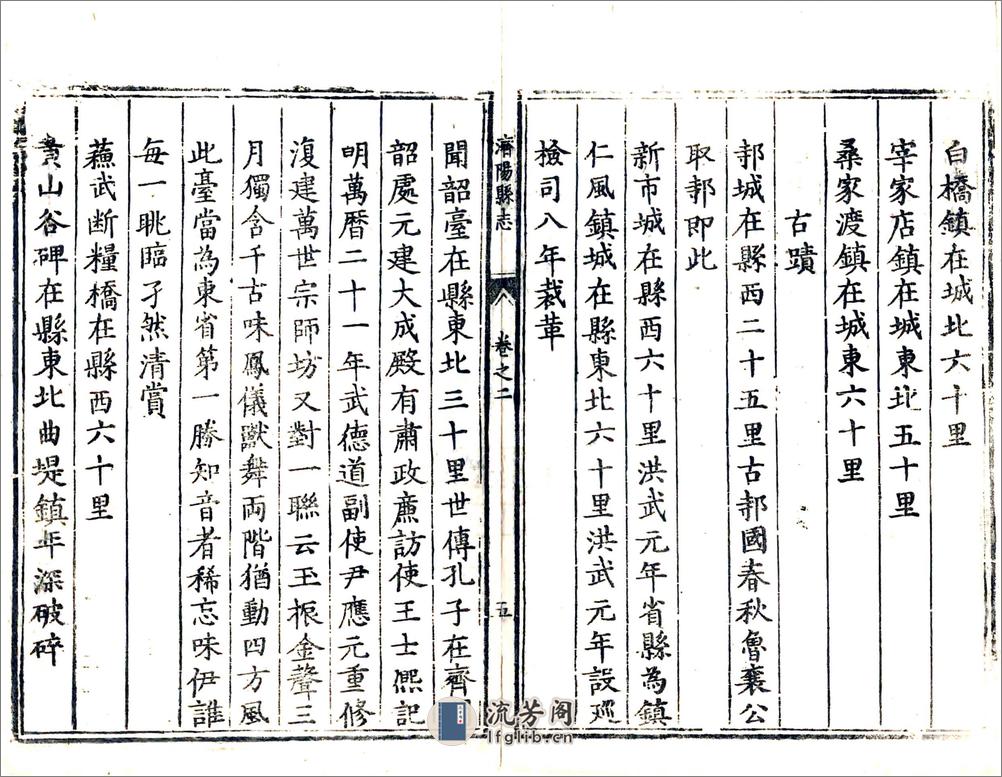 白橋鎮在城北六十里
宰家店鎮在城東北五十里
桑家渡鎮在城東六十里
古蹟
邿城在縣西二十五里古邿國春秋魯襄公
取邿即此
新市城在縣西六十里洪武元年省縣為鎮
仁風鎮城在縣東北六十里洪武元年設廵
檢司八年裁革
濟陽縣志
卷之二
五
聞韶臺在縣東北三十里世傳孔子在齊聞
韶處元建大成殿有肅政亷訪使王士熈記
明萬曆二十一年武德道副使尹應元重修
復建萬世宗師坊又對一聯云玉振金聲三
月獨含千古味鳳儀獸舞両階猶動四方風
此臺當為東省第一勝知音者稀忘味伊誰
每一眺臨孑然清賞
蘓武断糧橋在縣西六十里
黃山谷碑在縣東北曲堤鎮年深破碎
流芳阁
lfglib.cn